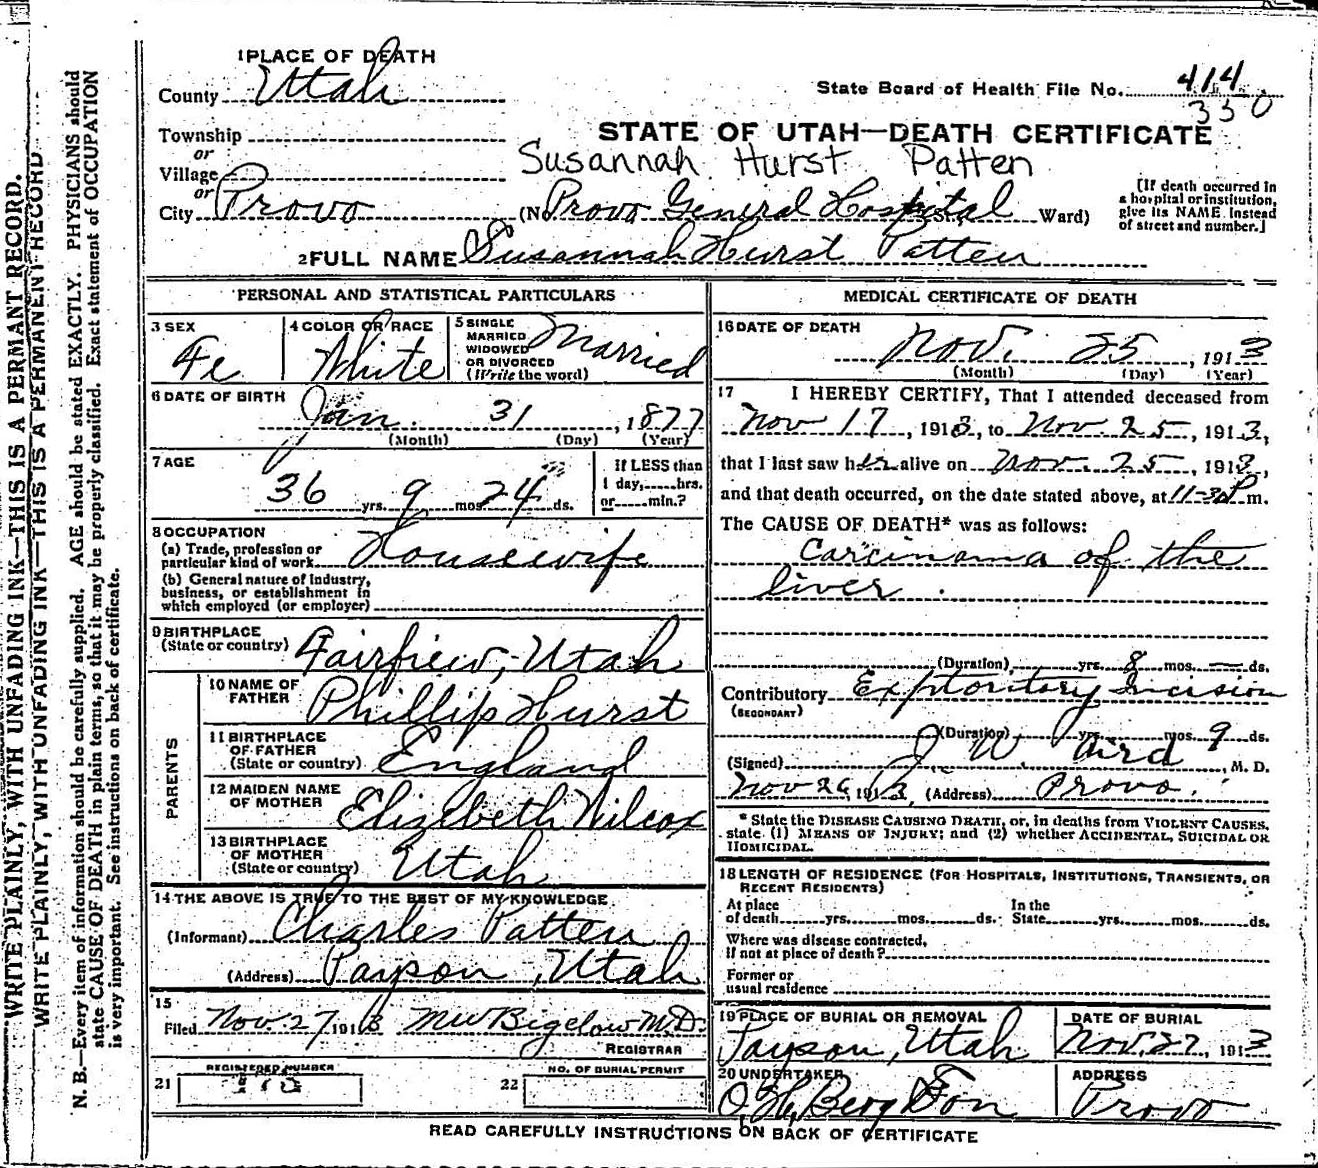 WRITE PLAINLY, WITH UNFADING INK—THIS IS A PERMANT RECORD.
WRITE PLAINLY, WITH UNFADING INK—THIS IS A PERMANENT RECORD
N. B.—Every item of information should be carefully supplied. AGE should be stated EXACTLY. PHYSICIANS should
state CAUSE OF DEATH in plain terms, so that it may be properly classified. Exact statement of OCCUPATION
is very important. See instructions on back of certificate.
1 PLACE OF DEATH
County Utah
State Board of Health File No. 414
350
Township
or
Village
or
City Provo
STATE OF UTAH—DEATH CERTIFICATE
Susannah Hurst Patten
(No Provo General Hospital St. Ward)
[If death occurred in
a hospital or institution,
give its NAME instead
of street and number.]
2 FULL NAME Susannah Hurst Patten
PERSONAL AND STATISTICAL PARTICULARS
3 SEX
Fe
4 COLOR OR RACE
White
5 SINGLE
MARRIED
WIDOWED
OR DIVORCED
(Write the word)
Married
6 DATE OF BIRTH
Jan. 31, 1877
(Month) (Day) (Year)
7 AGE
36 yrs. 9 mos 24 ds.
If LESS than
1 day, hrs.
or min.?
8 OCCUPATION
(a) Trade, profession or
particular kind of work Housewife
(b) General nature of industry,
business, or establishment in
which employed (or employer)
9 BIRTHPLACE
(State or country) Fairfiew, Utah
PARENTS
10 NAME OF
FATHER Phillip Hurst
11 BIRTHPLACE
OF FATHER
(State or country) England
12 MAIDEN NAME
OF MOTHER Elizebeth Wilcox
13 BIRTHPLACE
OF MOTHER
(State or country) Utah
14 THE ABOVE IS TRUE TO THE BEST OF MY KNOWLEDGE
(Informant) Charles Patten
(Address) Payson, Utah
15
Filed Nov. 27 1913 MW Bigelow M.D.
REGISTRAR
21 REGISTERED NUMBER
22 NO. OF BURIAL PERMIT
MEDICAL CERTIFICATE OF DEATH
16 DATE OF DEATH
Nov. 25, 1913
(Month) (Day) (Year)
17 I HEREBY CERTIFY, That I attended deceased from
Nov 17, 1913, to Nov. 25, 1913,
that I last saw her alive on Nov. 25, 1913,
and that death occurred, on the date stated above, at 11-30 P m.
The CAUSE OF DEATH* was as follows:
Carcinoma of the
liver.
(Duration) yrs. 8 mos. — ds.
Contributory Exploritory Incision
(SECONDARY)
(Duration) yrs. mos. 9 ds.
(Signed) J. W. Aird, M. D.
Nov 26, 1913, (Address) Provo.
* State the DISEASE CAUSING DEATH, or, in deaths from VIOLENT CAUSES,
state (1) MEANS OF INJURY; and (2) whether ACCIDENTAL, SUICIDAL OR
HOMICIDAL.
18 LENGTH OF RESIDENCE (FOR HOSPITALS, INSTITUTIONS, TRANSIENTS, OR
RECENT RESIDENTS)
At place
of death yrs. mos. ds.
In the
State yrs. mos. ds.
Where was disease contracted,
if not at place of death?
Former or
usual residence
19 PLACE OF BURIAL OR REMOVAL
Payson, Utah
DATE OF BURIAL
Nov. 27, 1913
20 UNDERTAKER
O. H. Berg & Son
ADDRESS
Provo
READ CAREFULLY INSTRUCTIONS ON BACK OF CERTIFICATE